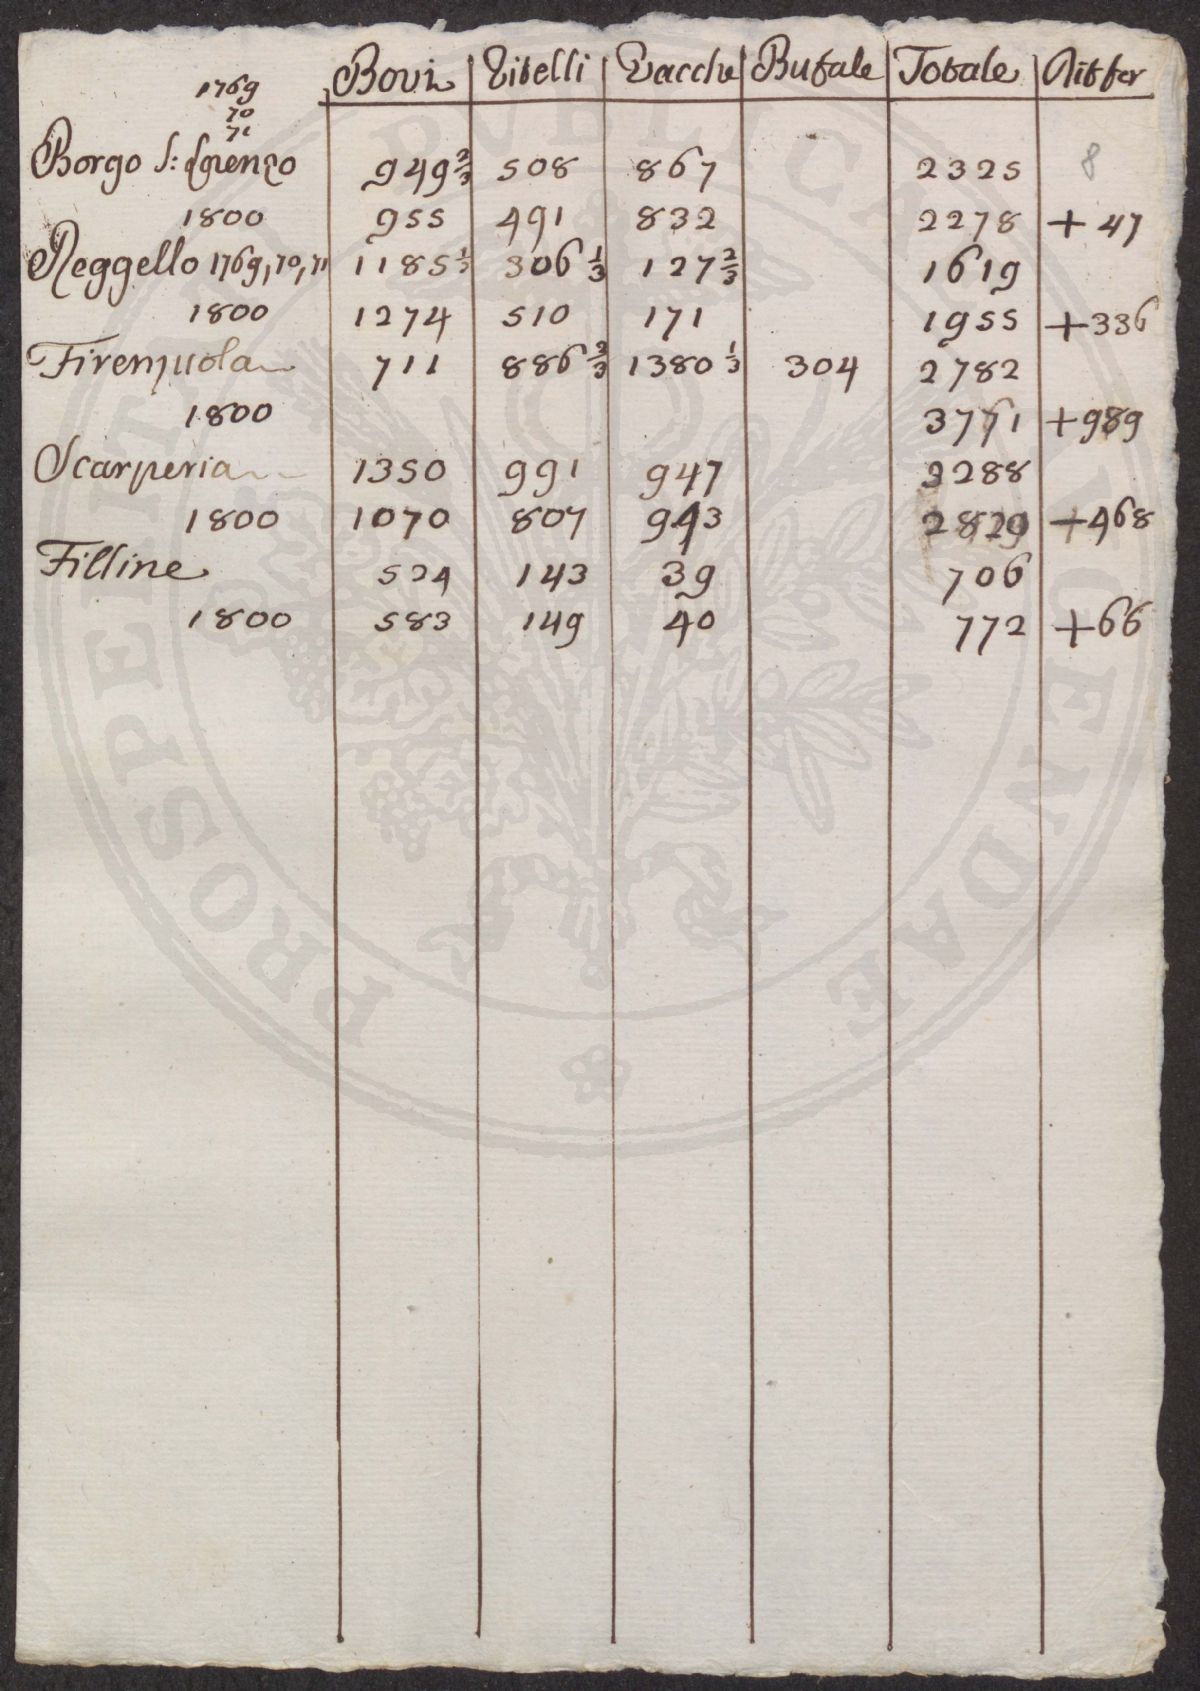 Bovi Vitelli Vacche Bufale Totale Differ
1769
70
71
Borgo S: Lorenzo 949 2/3 508 867 2325 8
1800 955 491 832 2278 + 47
Reggello 1769, 70, 71 1185 1/3 306 1/3 127 2/3 1619
1800 1274 510 171 1955 +336
Firenzuola 711 886 2/3 1380 1/3 304 2782
1800 3771 +989
Scarperia 1350 991 947 3288
1800 1070 807 943 2820 +468
Filline 524 143 39 706
1800 583 149 40 772 +66
PROSPERITATI PUBLICAE AUGENDAE